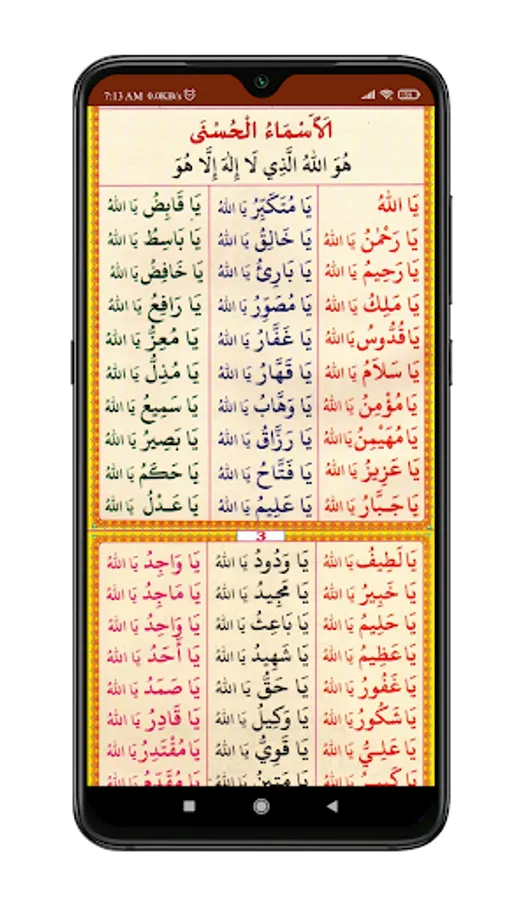 7:13 AM 0.0KB/s
اَلْأَسْمَاءُ الْحُسْنَى
هُوَ اللهُ الَّذِي لَا إِلٰهَ إِلَّا هُوَ
يَا اَللهُ يَا مُتَكَبِّرُ يَا اَللهُ يَا قَابِضُ يَا اَللهُ
يَا رَحْمٰنُ يَا اَللهُ يَا خَالِقُ يَا اَللهُ يَا بَاسِطُ يَا اَللهُ
يَا رَحِيمُ يَا اَللهُ يَا بَارِئُ يَا اَللهُ يَا خَافِضُ يَا اَللهُ
يَا مَلِكُ يَا اَللهُ يَا مُصَوِّرُ يَا اَللهُ يَا رَافِعُ يَا اَللهُ
يَا قُدُّوسُ يَا اَللهُ يَا غَفَّارُ يَا اَللهُ يَا مُعِزُّ يَا اَللهُ
يَا سَلَامُ يَا اَللهُ يَا قَهَّارُ يَا اَللهُ يَا مُذِلُّ يَا اَللهُ
يَا مُؤْمِنُ يَا اَللهُ يَا وَهَّابُ يَا اَللهُ يَا سَمِيعُ يَا اَللهُ
يَا مُهَيْمِنُ يَا اَللهُ يَا رَزَّاقُ يَا اَللهُ يَا بَصِيرُ يَا اَللهُ
يَا عَزِيزُ يَا اَللهُ يَا فَتَّاحُ يَا اَللهُ يَا حَكَمُ يَا اَللهُ
يَا جَبَّارُ يَا اَللهُ يَا عَلِيمُ يَا اَللهُ يَا عَدْلُ يَا اَللهُ
3
يَا لَطِيفُ يَا اَللهُ يَا وَدُودُ يَا اَللهُ يَا وَاجِدُ يَا اَللهُ
يَا خَبِيرُ يَا اَللهُ يَا مَجِيدُ يَا اَللهُ يَا مَاجِدُ يَا اَللهُ
يَا حَلِيمُ يَا اَللهُ يَا بَاعِثُ يَا اَللهُ يَا وَاحِدُ يَا اَللهُ
يَا عَظِيمُ يَا اَللهُ يَا شَهِيدُ يَا اَللهُ يَا أَحَدُ يَا اَللهُ
يَا غَفُورُ يَا اَللهُ يَا حَقُّ يَا اَللهُ يَا صَمَدُ يَا اَللهُ
يَا شَكُورُ يَا اَللهُ يَا وَكِيلُ يَا اَللهُ يَا قَادِرُ يَا اَللهُ
يَا عَلِيُّ يَا اَللهُ يَا قَوِيُّ يَا اَللهُ يَا مُقْتَدِرُ يَا اَللهُ
يَا كَبِيرُ يَا اَللهُ يَا مَتِينُ يَا اَللهُ يَا مُقَدِّمُ يَا اَللهُ